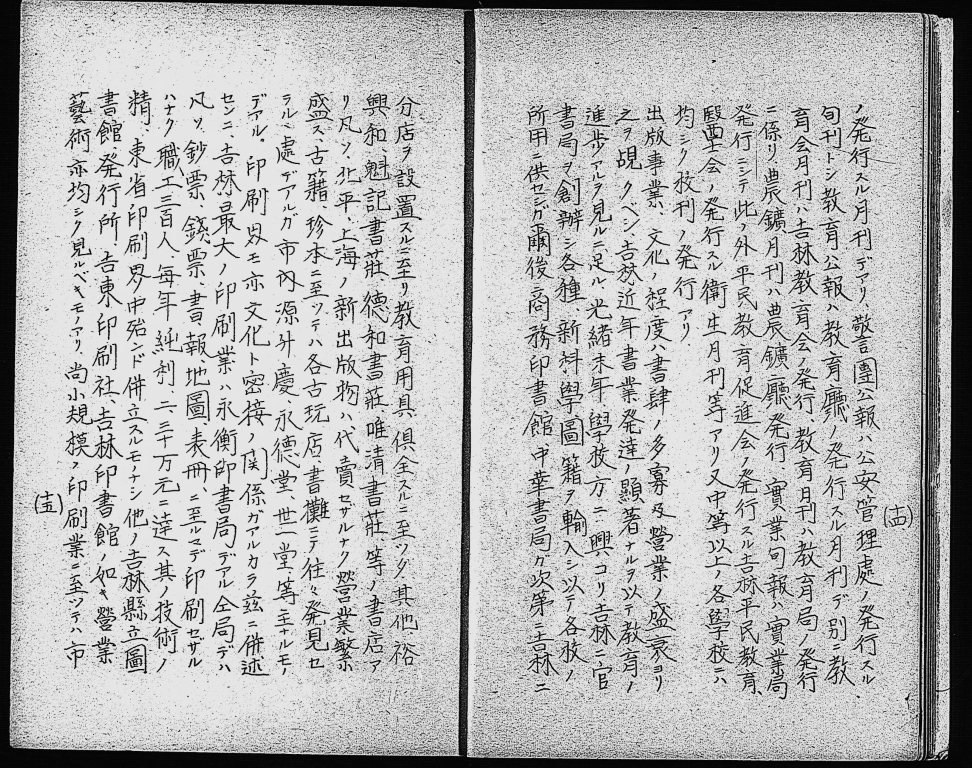 (十四)
ノ発行スル月刊デアリ、警團公報ハ公安管理處ノ発行スル
旬刊トシ教育公報ハ教育廳ノ発行スル月刊デ別ニ教
育会月刊ハ吉林教育会ノ発行、教育月刊ハ教育局ノ発行
ニ係リ、農鑛月刊ハ農鑛廳発行、實業旬報ハ實業局
発行ニシテ此ノ外平民教育促進会ノ発行スル吉林平民教育、
醫士会ノ発行スル衛生月刊等アリ又中等以上ノ各學校ニハ
均シク校刊ノ発行アリ
出版事業、文化ノ程度ハ書肆ノ多寡及營業ノ盛衰ヨリ
之ヲ覘クベシ、吉林近年書業発達ノ顕著ナルヲ以テ教育ノ
進歩アルヲ見ルニ足ル、光緒末年學校方ニ興コリ吉林ニ官
書局ヲ創辦シ各種ノ新科學圖籍ヲ輸入シ以テ各校ノ
所用ニ供セシガ爾後商務印書館中華書局ガ次第ニ吉林ニ
分店ヲ設置スルニ至リ教育用具、倶全スルニ至ツタ其他裕
興和、魁記書莊、德和書莊、唯清書莊、等ノ書店ア
リ凡ソ北平、上海ノ新出版物ハ代賣セザルナク營業繁
盛ス、古籍、珍本ニ至ツテハ各古玩店書攤ニテ往々発見セ
ラル、處デアルガ市内源升慶、永德堂、世一堂、等主ナルモノ
デアル。印刷界モ亦文化ト密接ノ関係ガアルカラ茲ニ併述
センニ吉林最大ノ印刷業ハ永衡印書局デアル仝局デハ
凡ソ鈔票、錢票、書、報、地圖、表冊、ニ至ルマデ印刷セザル
ハナク職工三百人、毎年純利、二、三十万元ニ達ス其ノ技術ノ
精、東省印刷界中殆ンド併立スルモノナシ他ノ吉林縣立圖
書館発行所、吉東印刷社、吉林印書館ノ如キ營業
藝術亦均シク見ルベキモノアリ、尚小規模ノ印刷業ニ至ツテハ市
(十五)